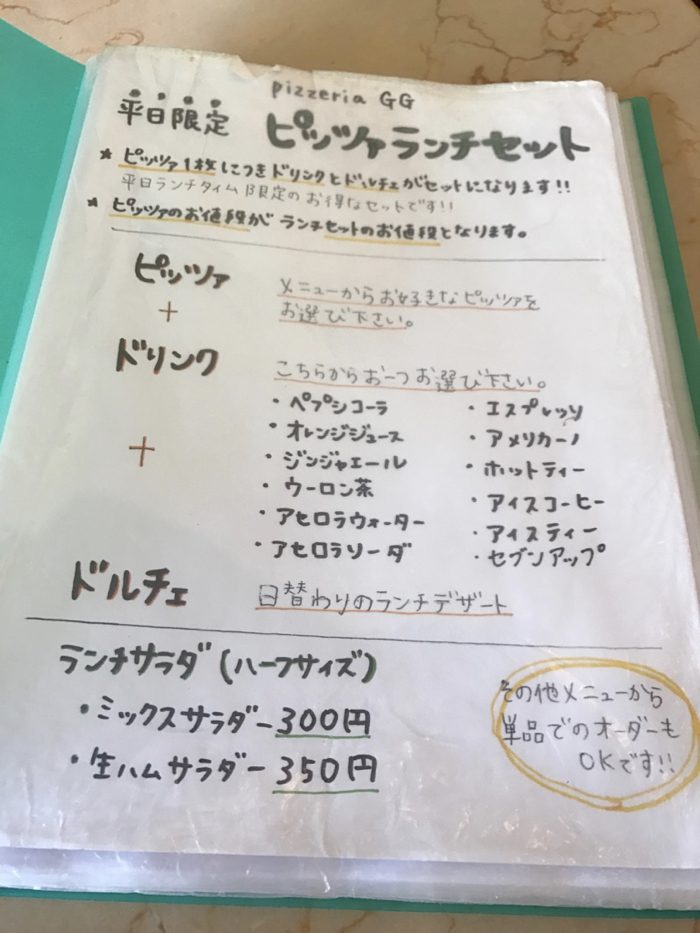 pizzeria GG
平日限定 ピッツァランチセット
★ ピッツァ1枚につきドリンクとドルチェがセットになります!!
平日ランチタイム限定のお得なセットです!!
★ ピッツァのお値段がランチセットのお値段となります。
ピッツァ メニューからお好きなピッツァを
お選び下さい。
+
ドリンク こちらからお一つお選び下さい。
・ペプシコーラ ・エスプレッソ
・オレンジジュース ・アメリカーノ
・ジンジャエール ・ホットティー
・ウーロン茶 ・アイスコーヒー
・アセロラウォーター ・アイスティー
・アセロラソーダ ・セブンアップ
+
ドルチェ 日替わりのランチデザート
ランチサラダ(ハーフサイズ)
・ミックスサラダー300円
・生ハムサラダー350円
その他メニューから
単品でのオーダーも
OKです!!